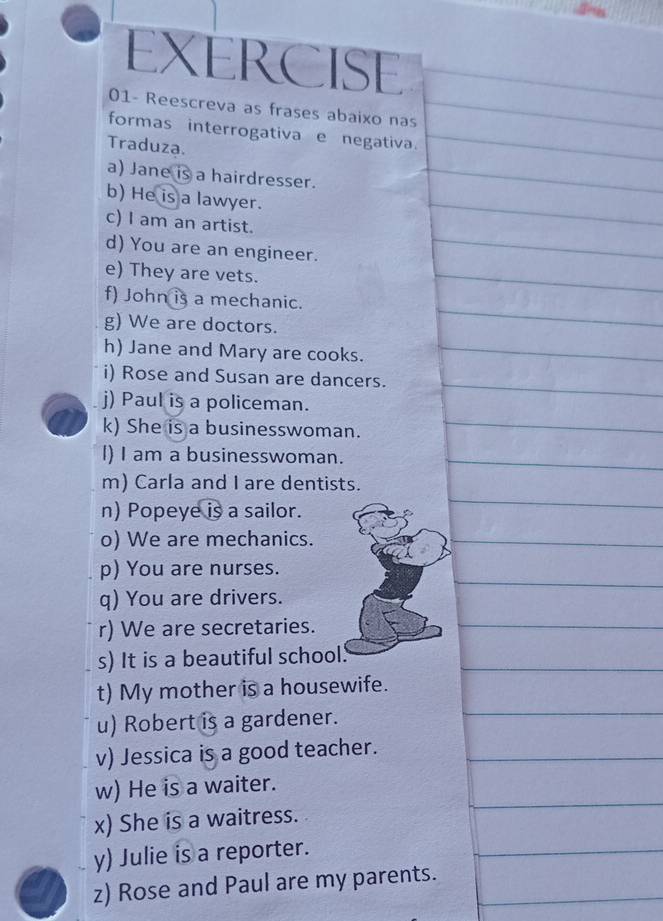 EXERCISE
01- Reescreva as frases abaixo nas
formas interrogativa e negativa.
Traduza.
a) Jane is a hairdresser.
b) He is a lawyer.
c) I am an artist.
d) You are an engineer.
e) They are vets.
f) John is a mechanic.
g) We are doctors.
h) Jane and Mary are cooks.
i) Rose and Susan are dancers.
j) Paul is a policeman.
k) She is a businesswoman.
l) I am a businesswoman.
m) Carla and I are dentists.
n) Popeye is a sailor.
o) We are mechanics.
p) You are nurses.
q) You are drivers.
r) We are secretaries.
s) It is a beautiful school.
t) My mother is a housewife.
u) Robert is a gardener.
v) Jessica is a good teacher.
w) He is a waiter.
x) She is a waitress.
y) Julie is a reporter.
z) Rose and Paul are my parents.